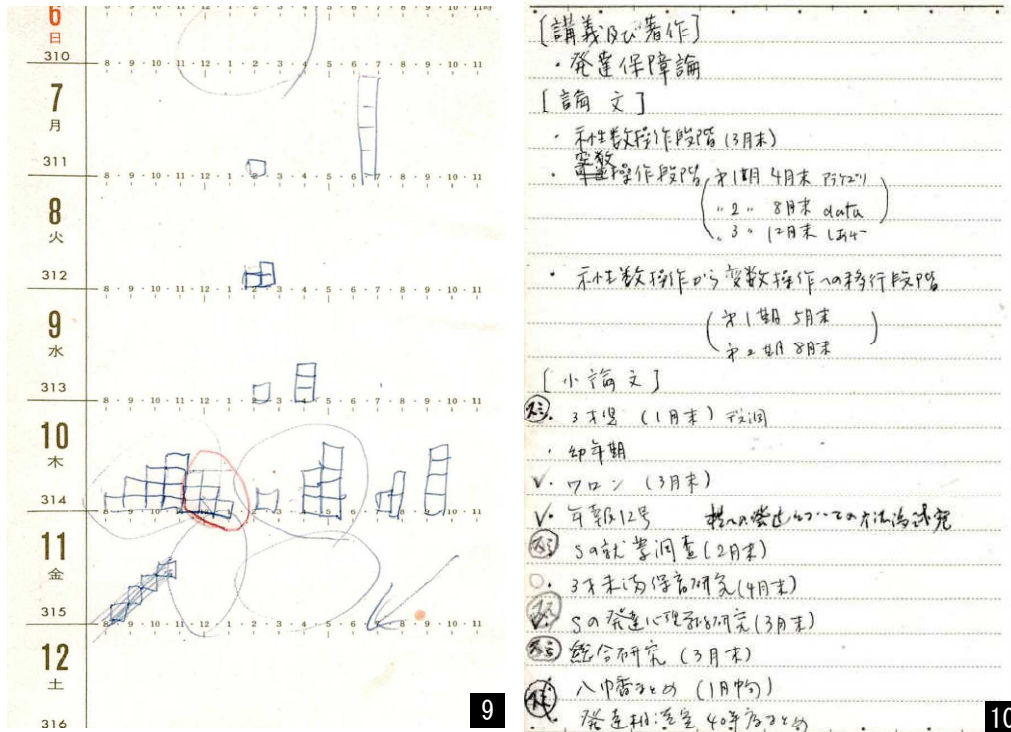 6
日
310
8・9・10・11・12・1・2・3・4・5・6・7・8・9・10・11時
7
月
311
8・9・10・11・12・1・2・3・4・5・6・7・8・9・10・11
8
火
312
8・9・10・11・12・1・2・3・4・5・6・7・8・9・10・11
9
水
313
8・9・10・11・12・1・2・3・4・5・6・7・8・9・10・11
10
木
314
8・9・10・11・12・1・2・3・4・5・6・7・8・9・10・11
11
金
315
8・9・10・11・12・1・2・3・4・5・6・7・8・9・10・11
12
土
316
9
[講義及び著作]
・発達保障論
[論文]
・示性数操作段階(3月末)
変数
・操作段階 才1期 4月末
〃2〃 8月末 data
〃3〃 12月末
・示性数操作から変数操作への移行段階
(才1期 5月末
才2期 8月末)
[小論文]
スミ・3才児 (1月末)
・幼年期
✓・ワロン (3月末)
✓・年報12号 発達についての方法論
スミ Sの就学調査(2月末)
○・3才未満保育研究(4月末)
Sの発達心理学的研究(3月末)
スミ 総合研究 (3月末)
八中番まとめ (1月中旬)
発達相談室 40年度まとめ
10